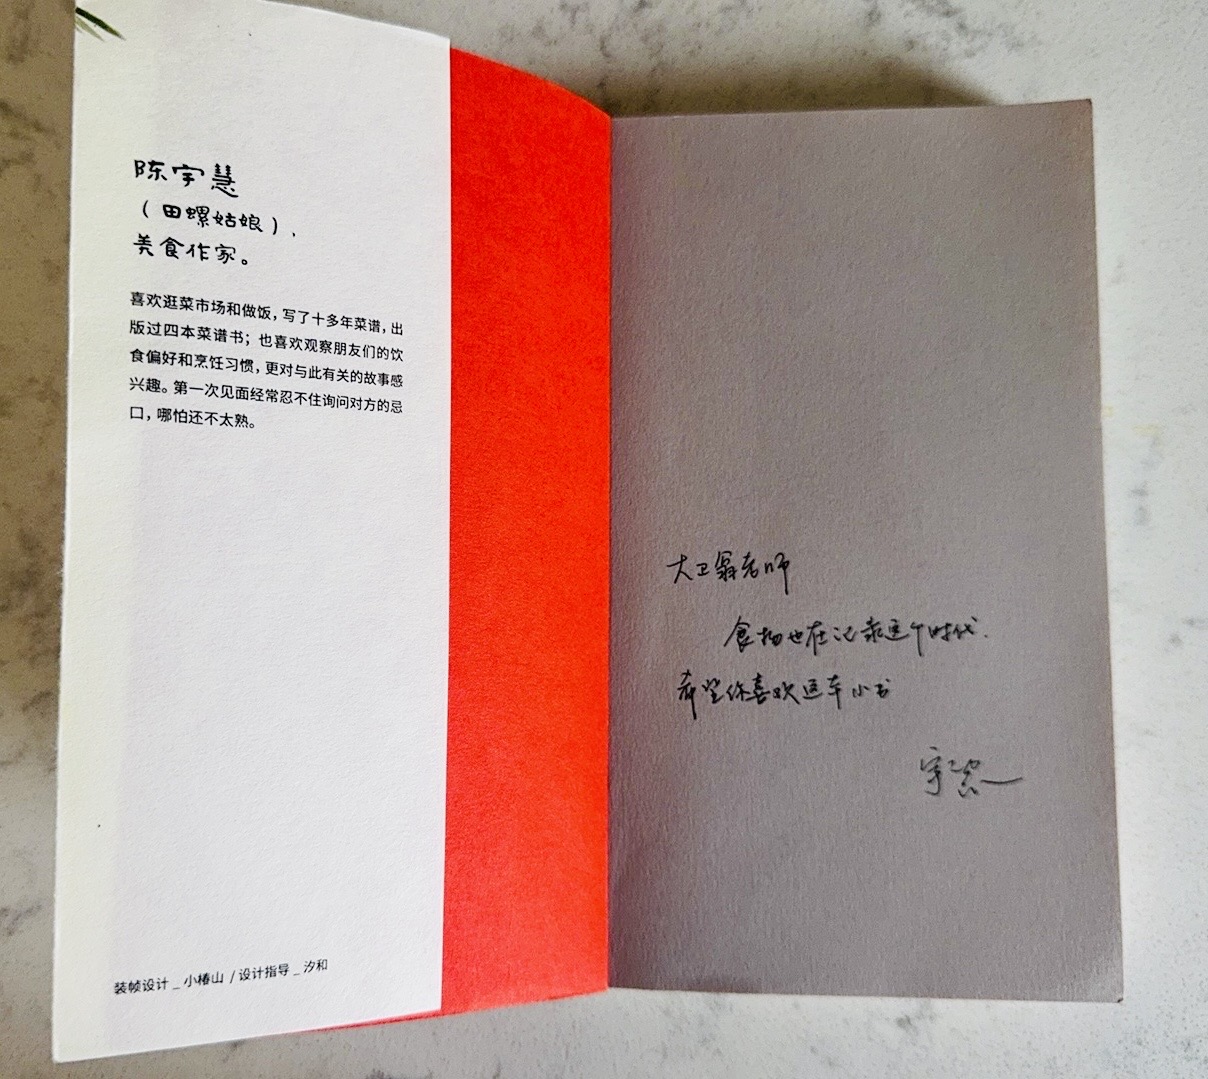 陈宇慧
（田螺姑娘），
美食作家。
喜欢逛菜市场和做饭，写了十多年菜谱，出
版过四本菜谱书；也喜欢观察朋友们的饮
食偏好和烹饪习惯，更对与此有关的故事感
兴趣。第一次见面经常忍不住询问对方的忌
口，哪怕还不太熟。
装帧设计_小椿山 / 设计指导_汐和
大卫翁老师
食物也在记录这个时代.
希望你喜欢这本小书
宇慧